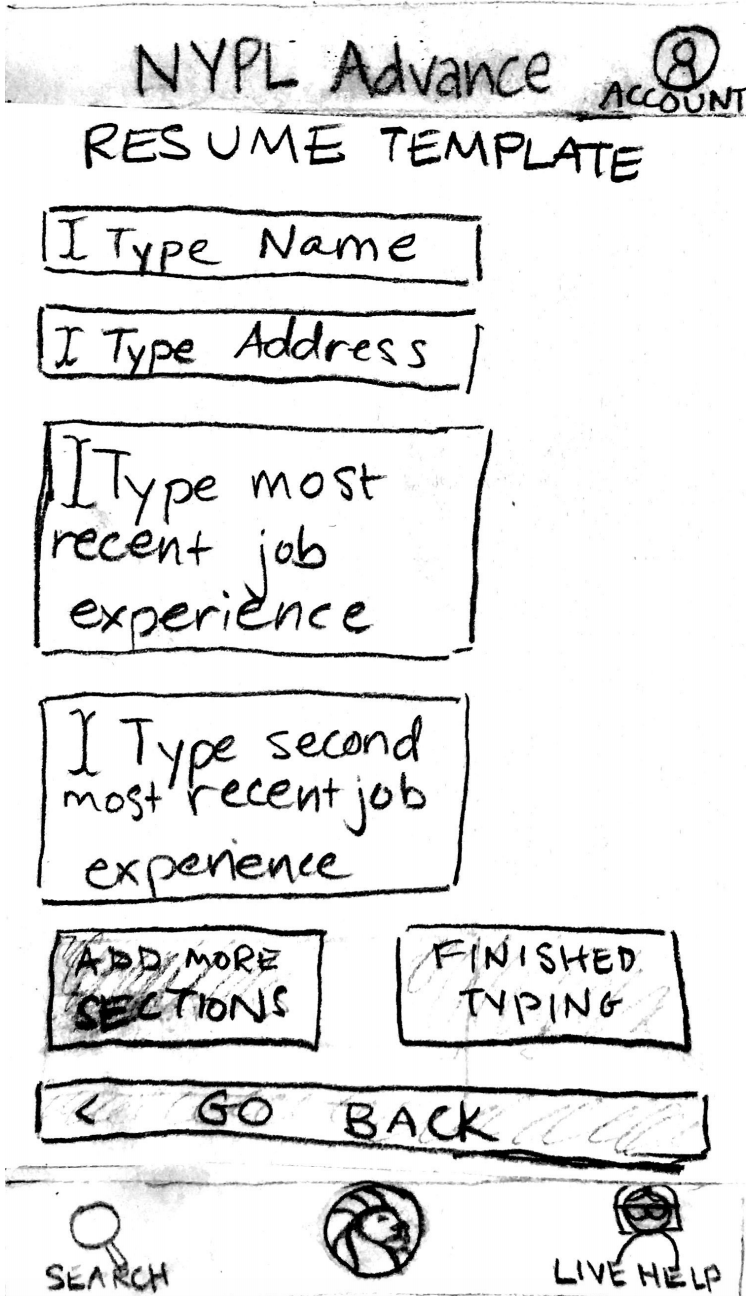 NYPL Advance
ACCOUNT
RESUME TEMPLATE
Type Name
Type Address
Type most
recent job
experience
Type second
most recent job
experience
ADD MORE
SECTIONS
FINISHED
TYPING
< GO BACK
SEARCH
LIVE HELP